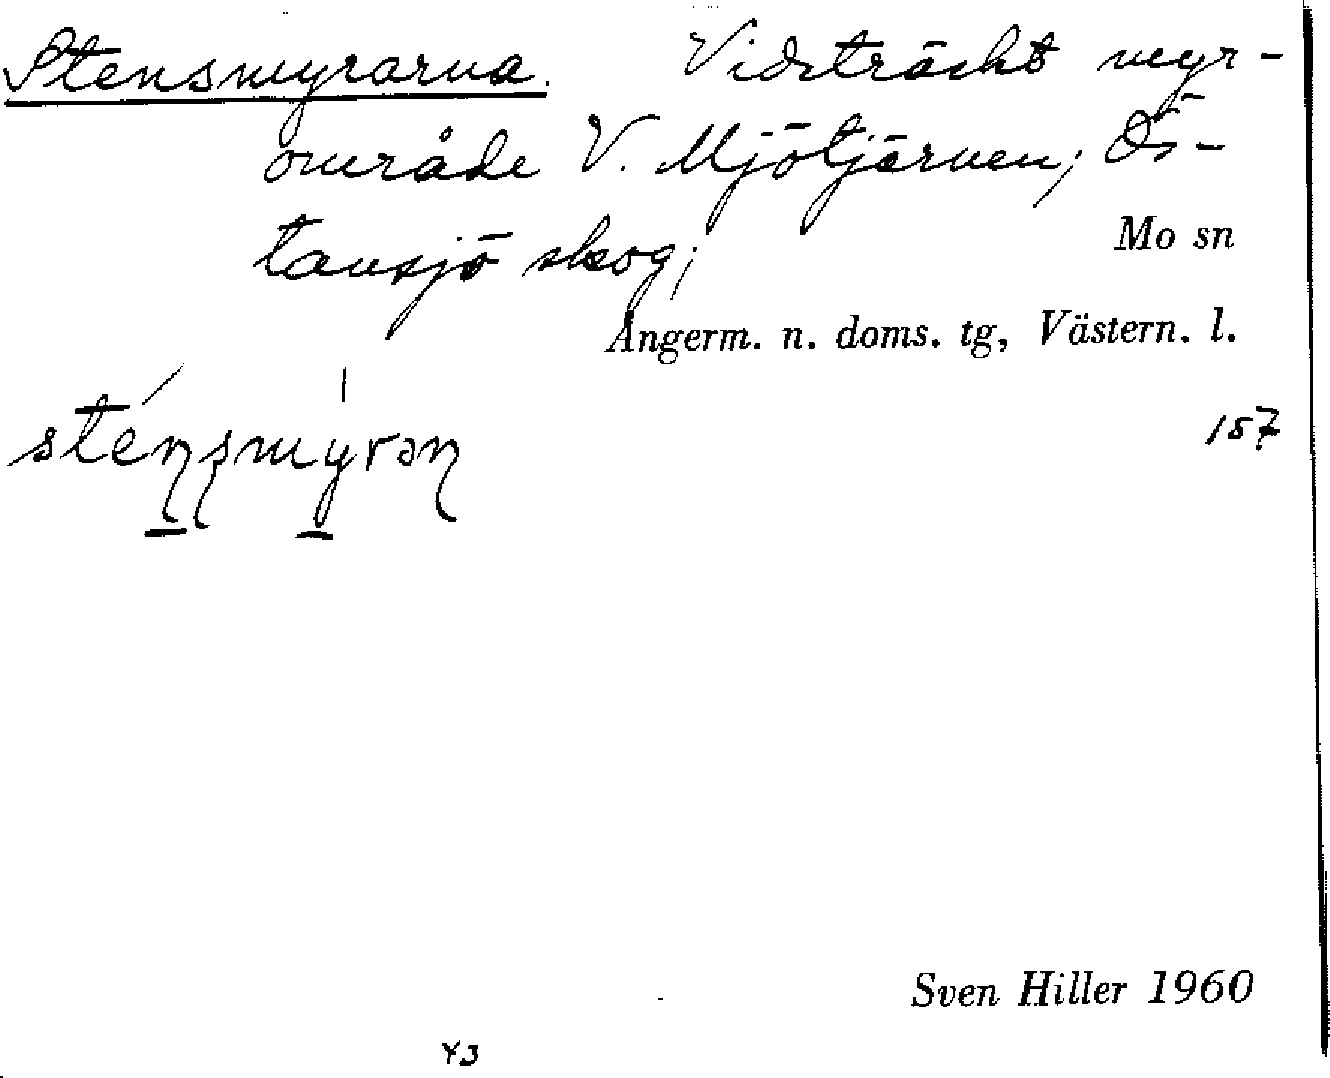 Stensmyrarna. Vidsträckt myr-
område V. Mjötjärnen; Ös-
tansjö skog;
Mo sn
Ångerm. n. doms. tg, Västern. l.
157
sténsmyrən
Sven Hiller 1960